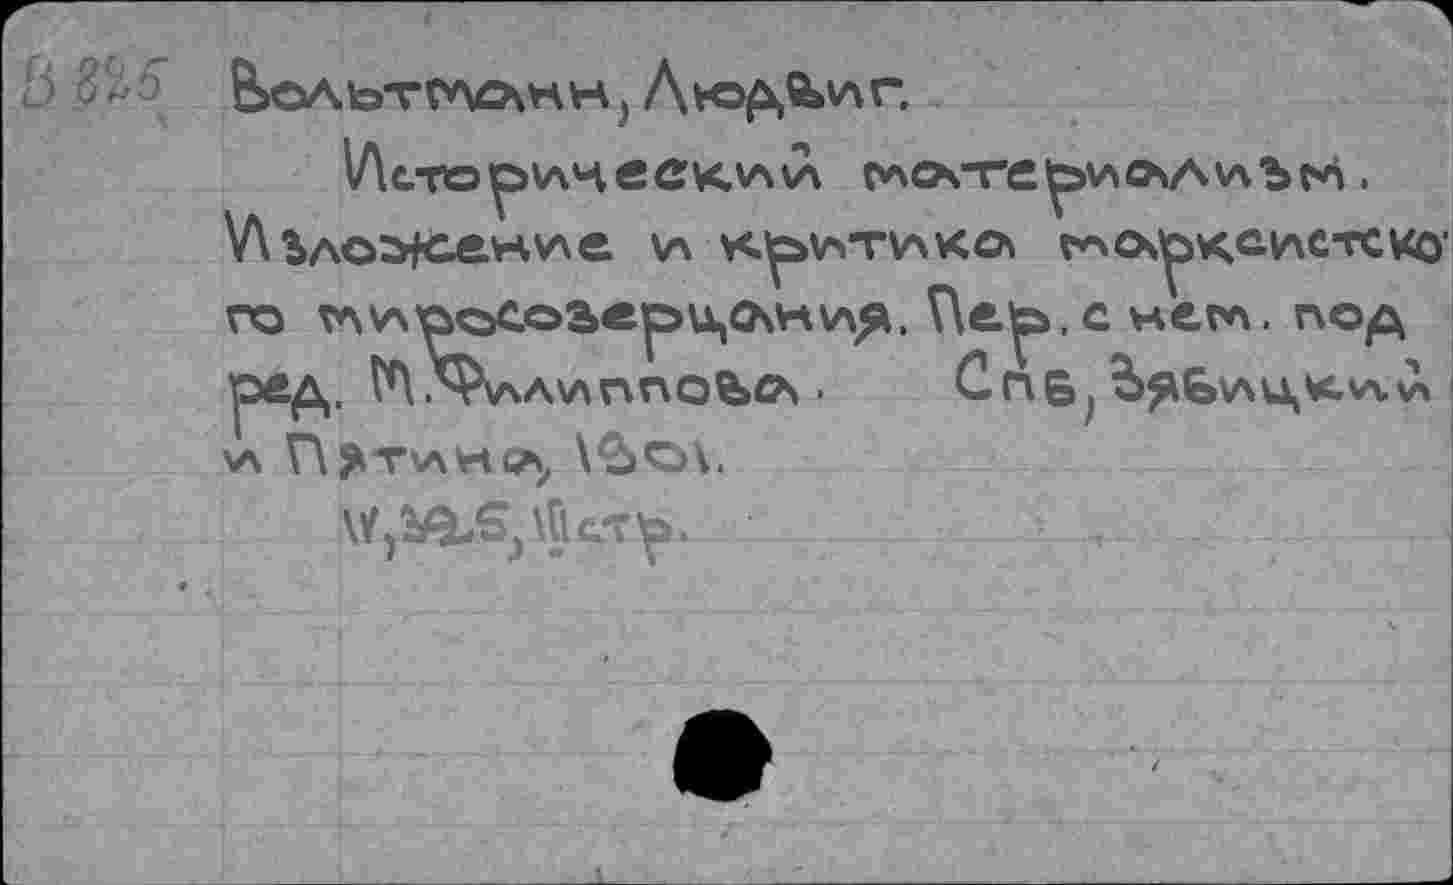 В 825 Вольтманн, Людвиг.
Исторический материализм.
Изложение и критика марксистско-
го миросозерцания. Пер. с нем. под
ред. М. Филиппова. СПБ, Зябицкий
и Пятина, 1901.